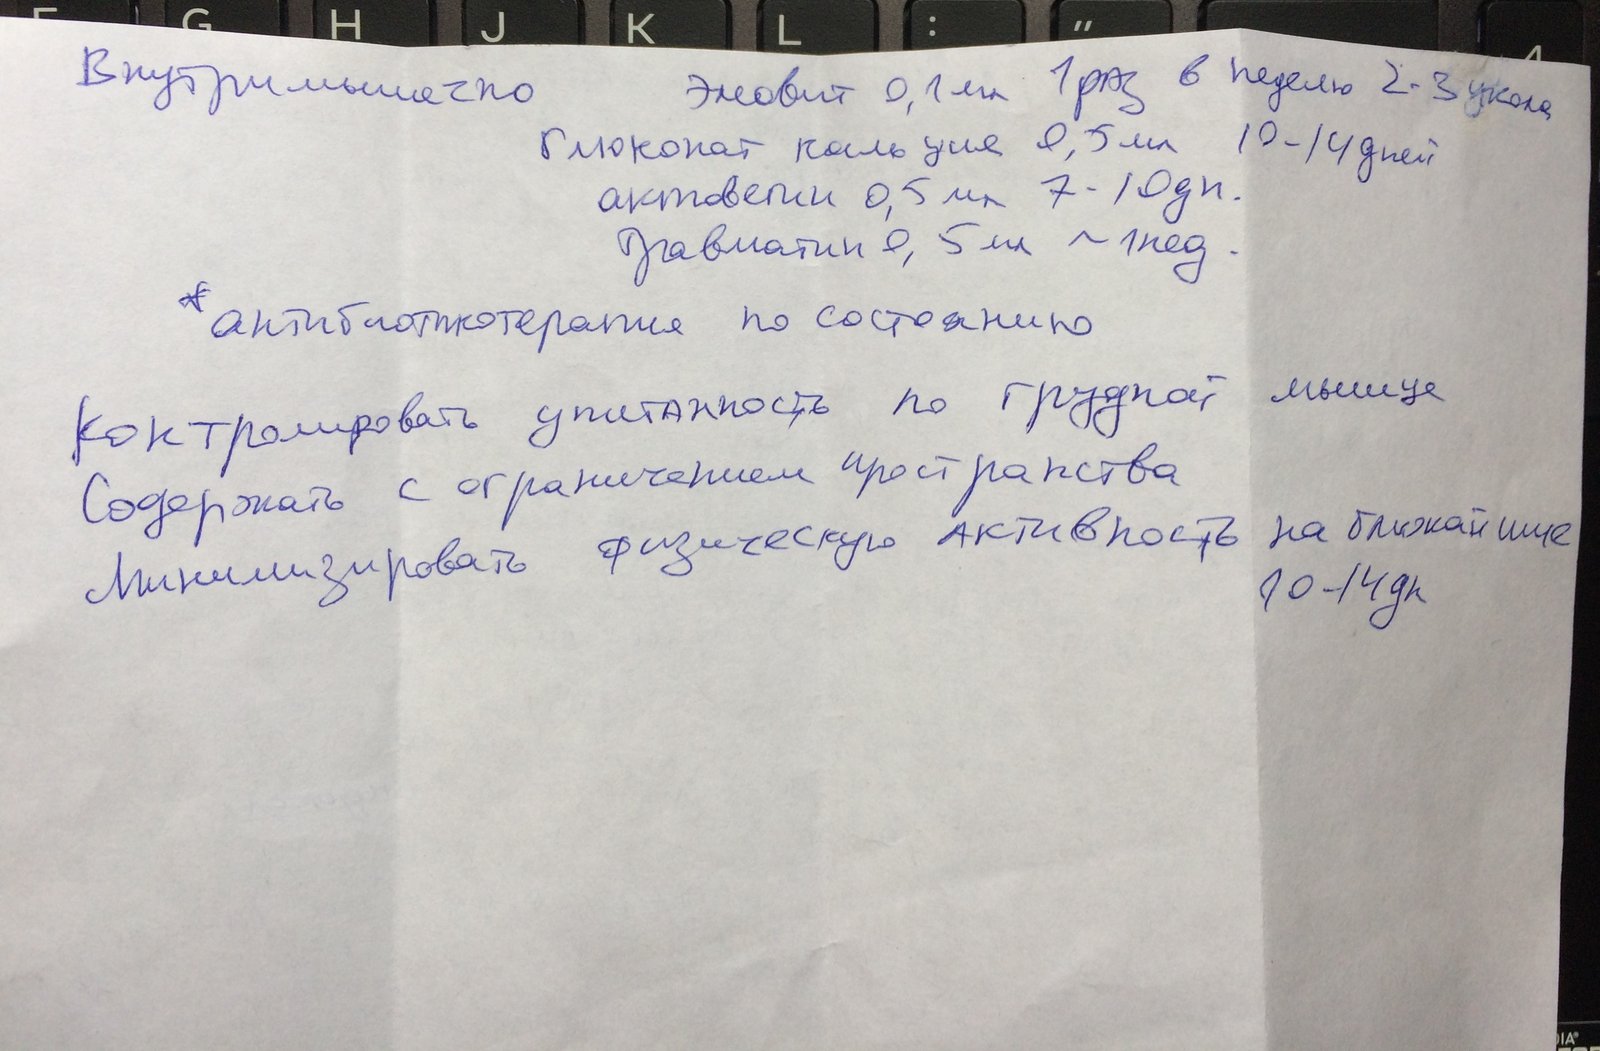 G H J K L : "
Внутримышечно Эловит 0,1 мл 1 раз в неделю 2-3 укола
Глюконат кальция 0,5 мл 10-14 дней
актовегин 0,5 мл 7-10 дн.
Травматин 0,5 мл ~1 нед.
*антибиотикотерапия по состоянию
Контролировать упитанность по грудной мышце
Содержать с ограничением пространства
Минимизировать физическую активность на ближайшие
10-14 дн